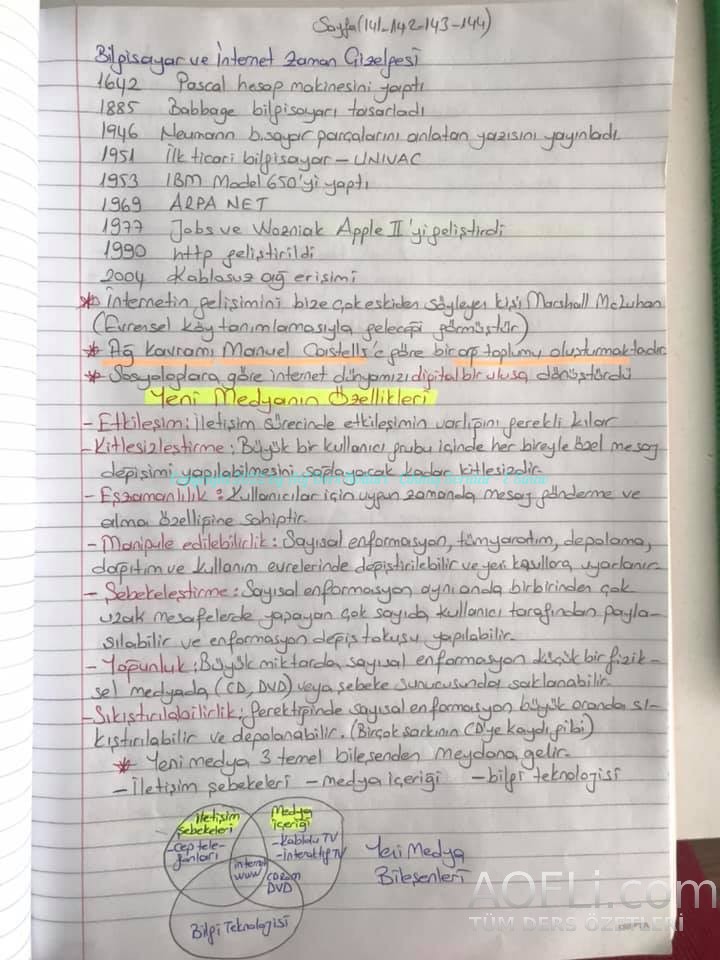 Sayfa (141-142-143-144)
Bilgisayar ve İnternet Zaman Çizelgesi
1642 Pascal hesap makinesini yaptı
1885 Babbage bilgisayarı tasarladı
1946 Neumann b.sayar parçalarını anlatan yazısını yayınladı.
1951 İlk ticari bilgisayar - UNIVAC
1953 IBM Model 650'yi yaptı
1969 ARPA NET
1977 Jobs ve Wozniak Apple II'yi geliştirdi
1990 http geliştirildi
2004 Kablosuz ağ erişimi
* İnternetin gelişimini bize çok eskiden söyleyen kişi Marshall McLuhan
(Evrensel köy tanımlamasıyla geleceği görmüştür)
* Ağ kavramı, Manuel Castells'e göre bir ağ toplumu oluşturmaktadır.
* Sosyologlara göre internet dünyamızı dijital bir ulusa dönüştürdü
Yeni Medyanın Özellikleri
- Etkileşim: İletişim sürecinde etkileşimin varlığını gerekli kılar
- Kitlesizleştirme: Büyük bir kullanıcı grubu içinde her bireyle özel mesaj
değişimi yapılabilmesini sağlayacak kadar kitlesizdir.
- Eşzamanlılık: Kullanıcılar için uygun zamanda mesaj gönderme ve
alma özelliğine sahiptir.
- Manipule edilebilirlik: Sayısal enformasyon, tüm yaratım, depolama,
dağıtım ve kullanım evrelerinde değiştirilebilir ve yeni koşullara uyarlanır.
- Şebekeleştirme: Sayısal enformasyon aynı anda birbirinden çok
uzak mesafelerde yaşayan çok sayıda kullanıcı tarafından payla-
şılabilir ve enformasyon değiş tokuşu yapılabilir.
- Yoğunluk: Büyük miktarda sayısal enformasyon küçük bir fizik-
sel medyada (CD, DVD) veya şebeke sunucusunda saklanabilir.
- Sıkıştırılabilirlik: gerektiğinde sayısal enformasyon büyük oranda sı-
kıştırılabilir ve depolanabilir. (Birçok şarkının CD'ye kaydı gibi)
* Yeni medya 3 temel bileşenden meydana gelir.
- İletişim şebekeleri - medya içeriği - bilgi teknolojisi
İletişim
şebekeleri
- cep tele-
fonları
Medya
içeriği
- Kablolu TV
- İnteraktif TV
internet
www
CD rom
DVD
Bilgi Teknolojisi
Yeni Medya
Bileşenleri
AOFLi.com
TÜM DERS ÖZETLERİ